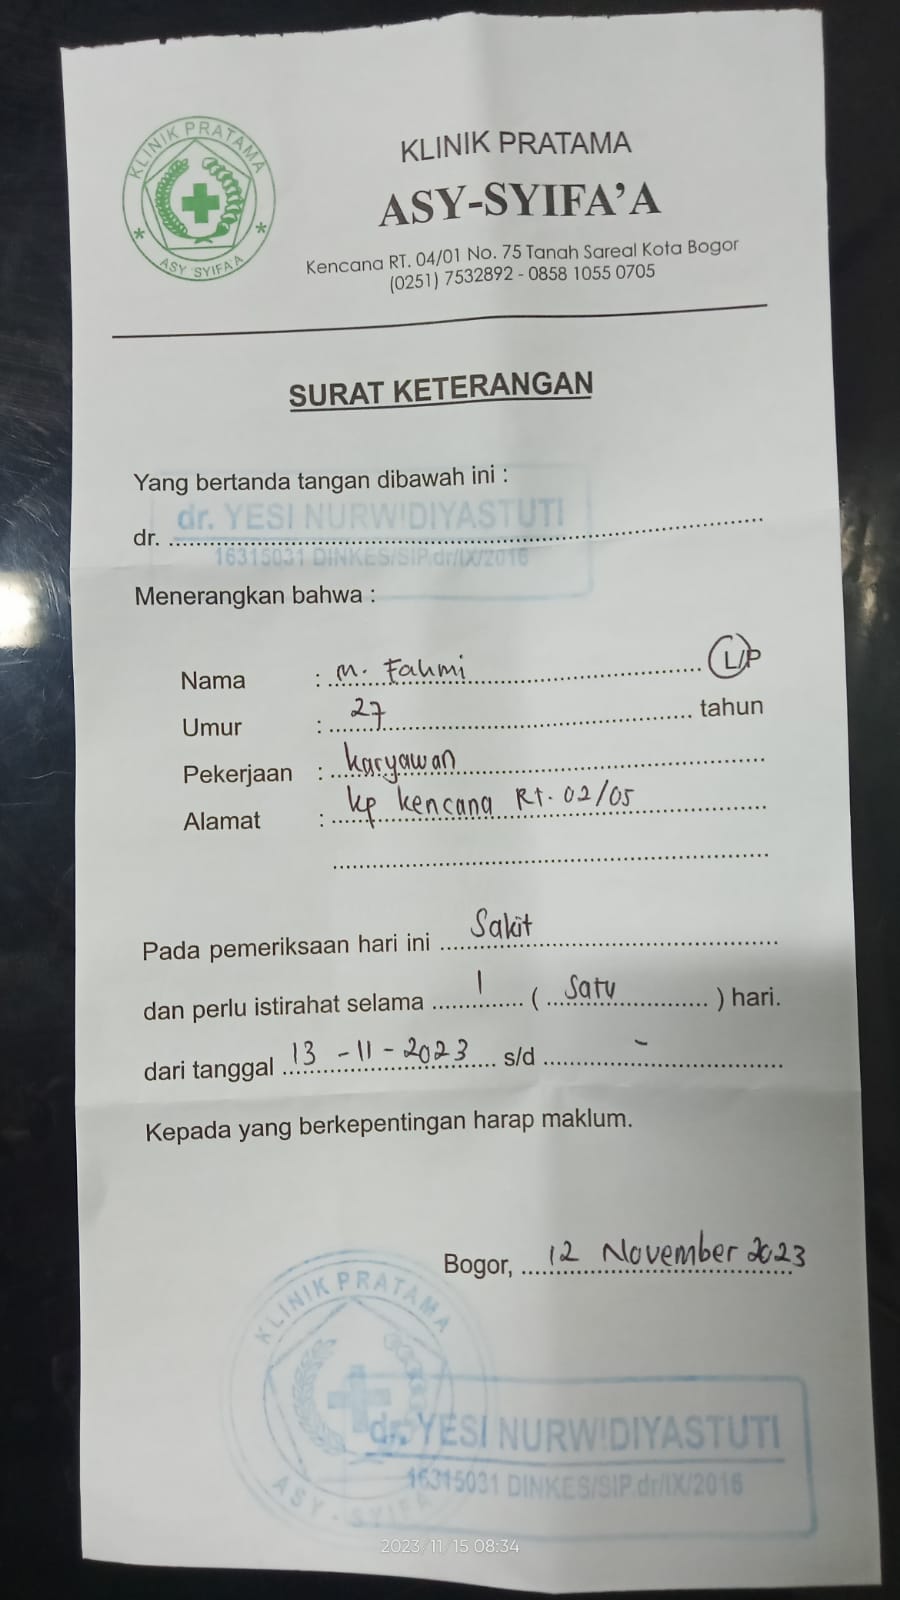 KLINIK PRATAMA
ASY SYIFA'A
KLINIK PRATAMA
ASY-SYIFA'A
Kencana RT. 04/01 No. 75 Tanah Sareal Kota Bogor
(0251) 7532892 - 0858 1055 0705
SURAT KETERANGAN
Yang bertanda tangan dibawah ini :
dr. YESI NURWIDIYASTUTI
dr.
16315031 DINKES/SIP.dr/IX/2016
Menerangkan bahwa :
Nama : M. Fahmi L/P
Umur : 27 tahun
Pekerjaan : karyawan
Alamat : kp kencana Rt. 02/05
Pada pemeriksaan hari ini Sakit
dan perlu istirahat selama 1 ( Satu ) hari.
dari tanggal 13 -11 - 2023 s/d -
Kepada yang berkepentingan harap maklum.
Bogor, 12 November 2023
KLINIK PRATAMA
ASY-SYIFA'A
dr. YESI NURWIDIYASTUTI
16315031 DINKES/SIP.dr/IX/2016
2023/11/15 08:34